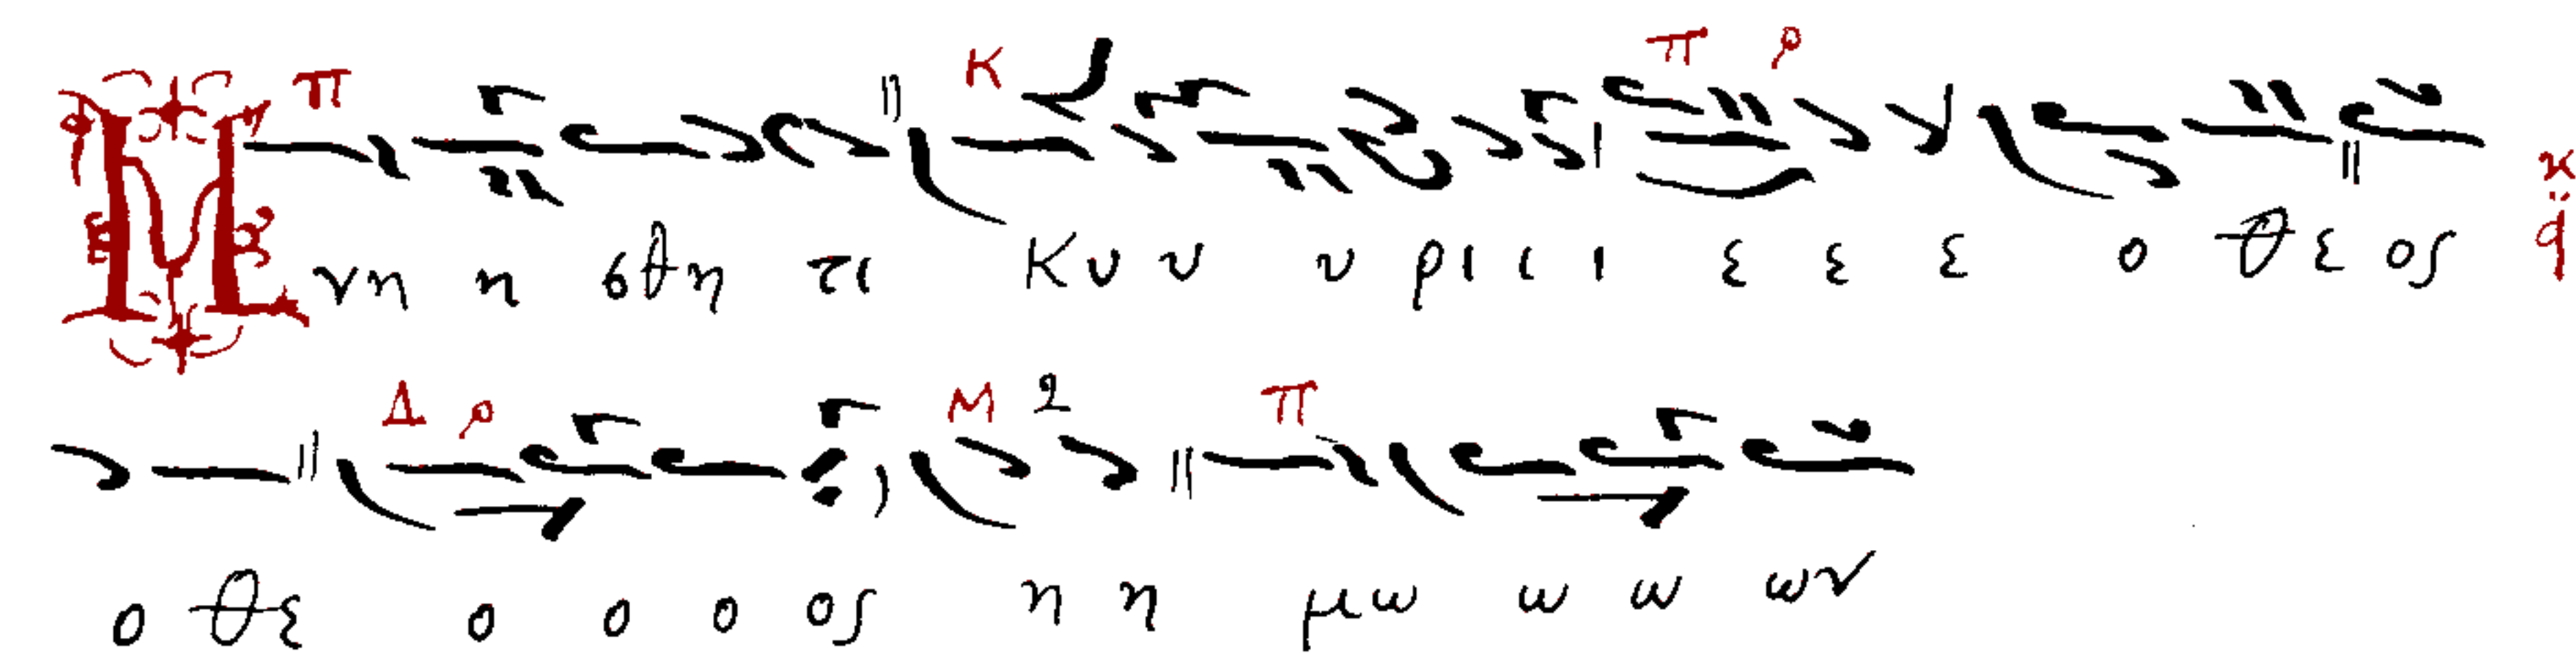 Μνη η σθη τι Κυ υ υ ρι ι ι ε ε ε ο θε ος
ο θε ο ο ο ος η η μω ω ω ων